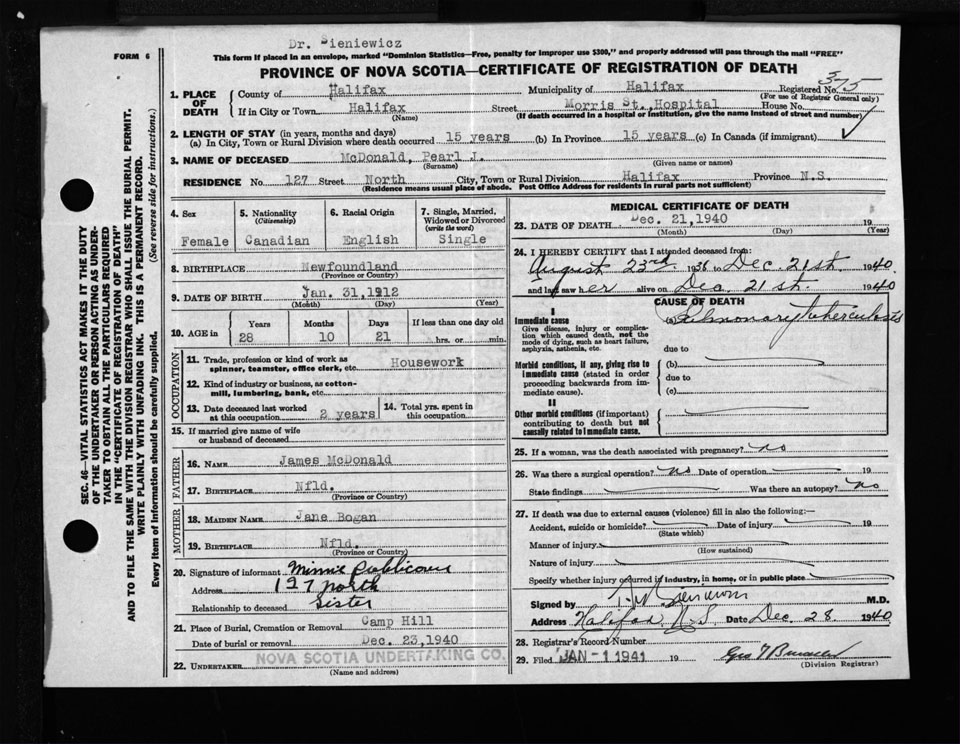 Dr. Bieniewicz
FORM 6
This form if placed in an envelope, marked "Dominion Statistics—Free, penalty for improper use $300," and properly addressed will pass through the mail "FREE"
PROVINCE OF NOVA SCOTIA—CERTIFICATE OF REGISTRATION OF DEATH
1. PLACE OF DEATH
County of Halifax Municipality of Halifax Registered No. 375
(For use of Registrar General only)
If in City or Town Halifax Street Morris St., Hospital House No.
(Name) (If death occurred in a hospital or institution, give the name instead of street and number)
2. LENGTH OF STAY (in years, months and days)
(a) In City, Town or Rural Division where death occurred 15 years (b) In Province 15 years (c) In Canada (if immigrant)
3. NAME OF DECEASED McDonald, Pearl J.
(Surname) (Given name or names)
RESIDENCE No. 127 Street North City, Town or Rural Division Halifax Province N.S.
(Residence means usual place of abode. Post Office Address for residents in rural parts not sufficient)
4. Sex
Female
5. Nationality (Citizenship)
Canadian
6. Racial Origin
English
7. Single, Married, Widowed or Divorced (write the word)
Single
8. BIRTHPLACE Newfoundland
(Province or Country)
9. DATE OF BIRTH Jan. 31, 1912
(Month) (Day) (Year)
10. AGE in
Years Months Days If less than one day old
28 10 21 hrs. or min.
OCCUPATION
11. Trade, profession or kind of work as spinner, teamster, office clerk, etc. Housework
12. Kind of industry or business, as cotton-mill, lumbering, bank, etc.
13. Date deceased last worked at this occupation 2 years
14. Total yrs. spent in this occupation
15. If married give name of wife or husband of deceased
FATHER
16. NAME James McDonald
17. BIRTHPLACE Nfld.
(Province or Country)
MOTHER
18. MAIDEN NAME Jane Bogan
19. BIRTHPLACE Nfld.
(Province or Country)
20. Signature of informant Minnie Publicover
Address 127 North
Relationship to deceased Sister
21. Place of Burial, Cremation or Removal Camp Hill
Date of burial or removal Dec. 23, 1940
22. UNDERTAKER NOVA SCOTIA UNDERTAKING CO.
(Name and address)
MEDICAL CERTIFICATE OF DEATH
23. DATE OF DEATH Dec. 21, 1940 19
(Month) (Day) (Year)
24. I HEREBY CERTIFY that I attended deceased from:
August 23rd 1936 to Dec. 21st 1940
and last saw her alive on Dec. 21st. 1940
CAUSE OF DEATH
I
Immediate cause (a) Pulmonary tuberculosis
Give disease, injury or complication which caused death, not the mode of dying, such as heart failure, asphyxia, asthenia, etc.
due to
Morbid conditions, if any, giving rise to immediate cause (stated in order proceeding backwards from immediate cause).
(b)
due to
(c)
II
Other morbid conditions (if important) contributing to death but not causally related to immediate cause.
25. If a woman, was the death associated with pregnancy? no
26. Was there a surgical operation? no Date of operation 19
State findings Was there an autopsy? no
27. If death was due to external causes (violence) fill in also the following:—
Accident, suicide or homicide? Date of injury 19
(State which)
Manner of injury
(How sustained)
Nature of injury
Specify whether injury occurred in industry, in home, or in public place
Signed by M.D.
Address Halifax N.S. Date Dec. 28 1940
28. Registrar's Record Number
29. Filed JAN -1 1941 19
(Division Registrar)
SEC. 46—VITAL STATISTICS ACT MAKES IT THE DUTY
OF THE UNDERTAKER OR PERSON ACTING AS UNDER-
TAKER TO OBTAIN ALL THE PARTICULARS REQUIRED
IN THE "CERTIFICATE OF REGISTRATION OF DEATH"
AND TO FILE THE SAME WITH THE DIVISION REGISTRAR WHO SHALL ISSUE THE BURIAL PERMIT.
WRITE PLAINLY WITH UNFADING INK. THIS IS A PERMANENT RECORD.
Every item of information should be carefully supplied. (See reverse side for instructions.)